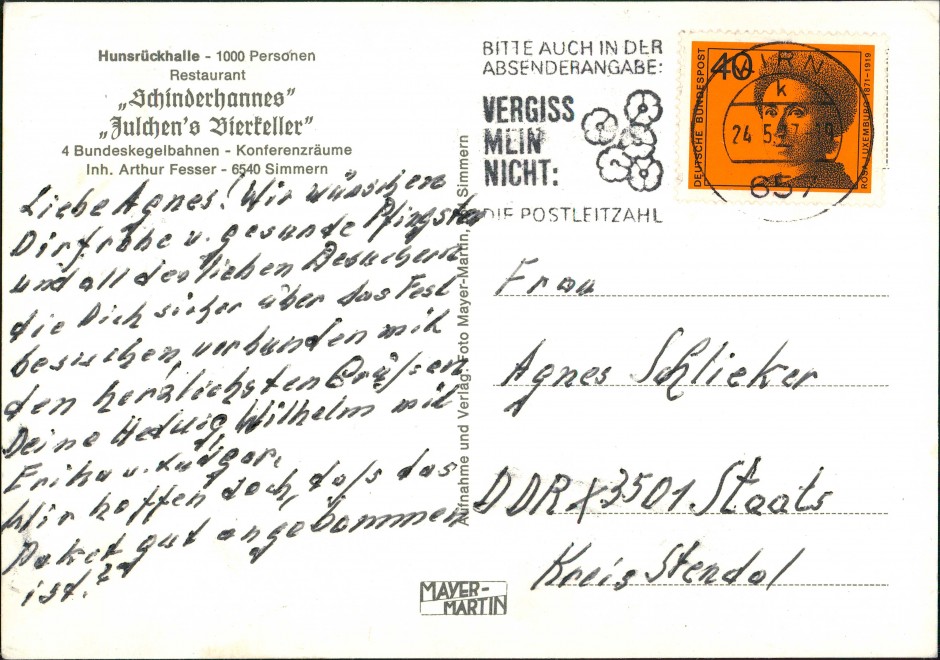 Hunsrückhalle - 1000 Personen
Restaurant
„Schinderhannes"
„Julchen's Bierkeller"
4 Bundeskegelbahnen - Konferenzräume
Inh. Arthur Fesser - 6540 Simmern
Liebe Agnes! Wir wünschen
Dir frohe u. gesunde Pfingsten
und all den lieben Besuchern
die Dich sicher über das Fest
besuchen, verbunden mit
den herzlichsten Grüßen
Deine Hedwig, Wilhelm mit
Erika u. Ludger.
Wir hoffen doch, daß das
Paket gut angekommen
ist.?
Aufnahme und Verlag: Foto Mayer-Martin, Simmern
MAYER-
MARTIN
BITTE AUCH IN DER
ABSENDERANGABE:
VERGISS
MEIN
NICHT:
DIE POSTLEITZAHL
DEUTSCHE BUNDESPOST
40
ROSA LUXEMBURG 1871-1919
KIRN
k
24.5.
657
Frau
Agnes Schlieker
DDR X3501 Staats
Kreis Stendal